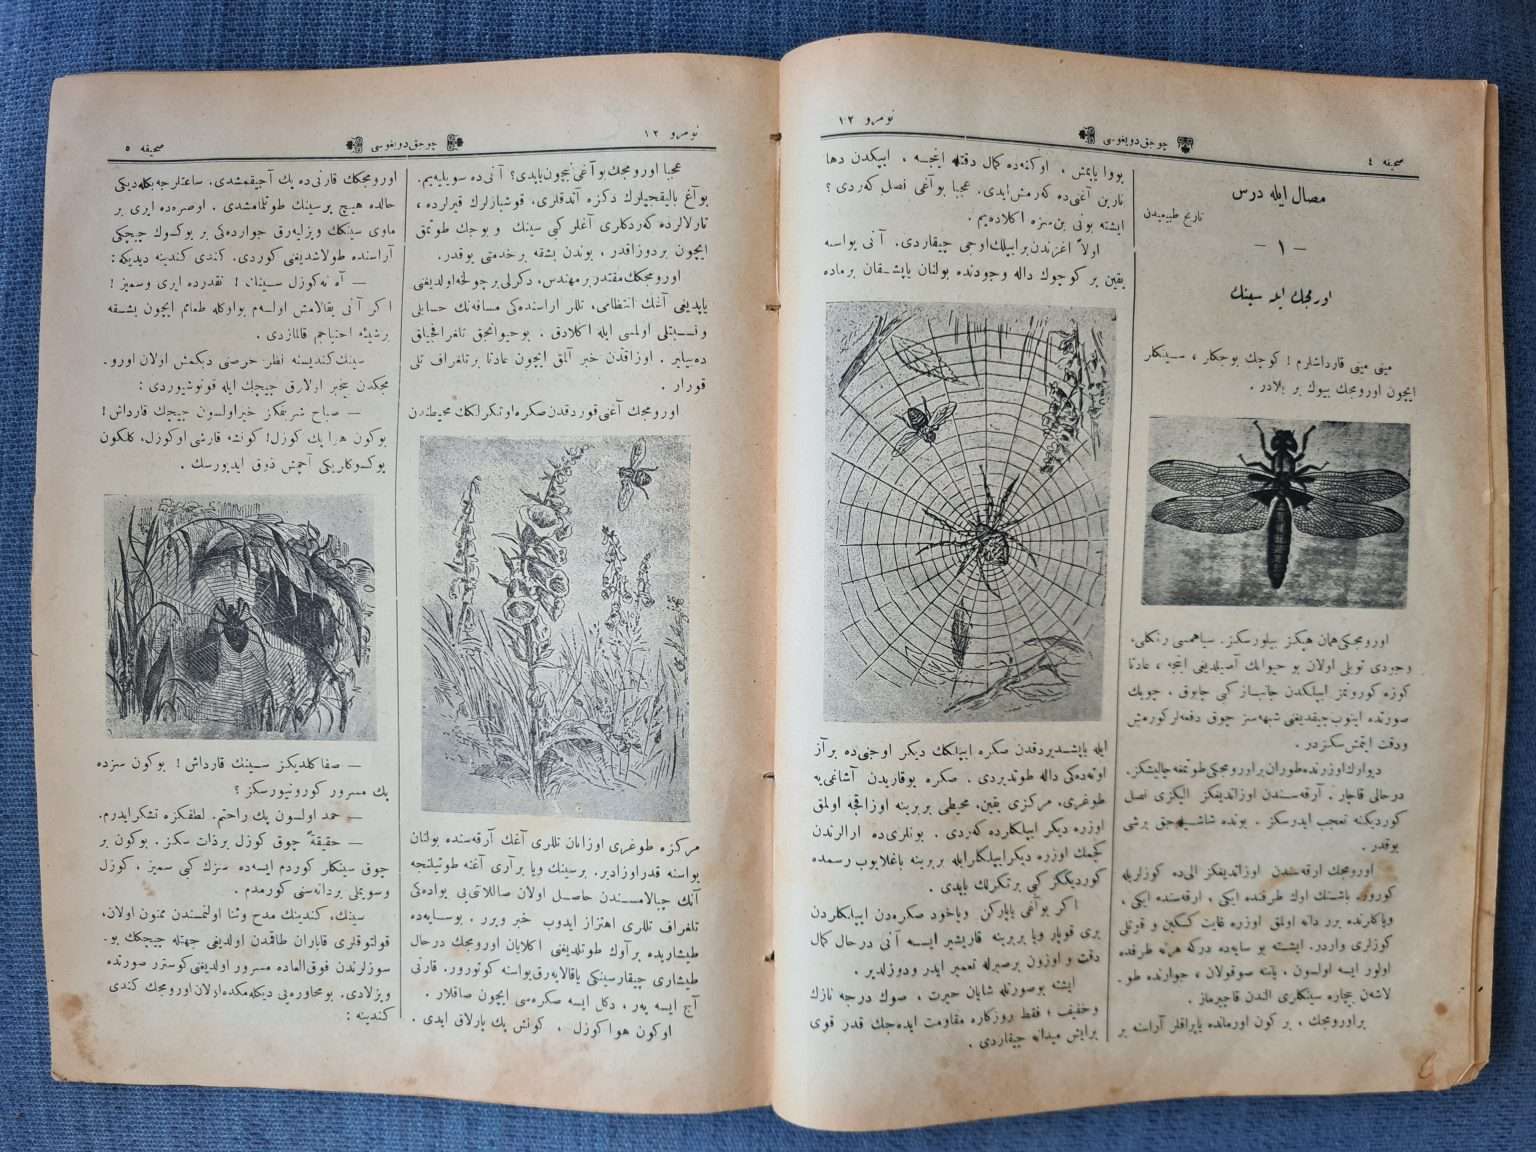 صحیفه ٤
چوجق دویغوسی
نومرو ١٢
مصال ایله درس
تاریخ طبیعیدن
— ١ —
اورمجك ایله سینك
مینی مینی قارداشلرم! كوچك بوجكلر ، سینكلر
ایچون اورومجك بیوك بر بلادر .
اورومجكی همان هپكز بیلورسكز. سیاهمسی رنكلی،
وجودی تویلی اولان بو حیوانك آصیلدیغی اینجه ، عادتا
كوزه كورونمز ایپلكدن جانباز كبی چابوق . چویك
صورتده اینوب چیقدیغنی شبهه سز چوق دفعه لر كورمش
ودقت ایتمش سكزدر .
دیوارك اوزرنده طوران بر اورومجكی طوتمغه چالیشكز.
درحالی قاچار . آرقه سندن اوزاتدیغكز الیكزی نصل
كوردیكنه تعجب ایدرسكز . بونده شاشیله جق برشی
یوقدر .
اورومجك ارقه سندن اوزاتدیغكز الی ده كوزلریله
كورور. باشنك اوك طرفنده ایكی ، ارقه سنده ایكی ،
ویاكلرنده برر دانه اولمق اوزره غایت كسكین و قوتلی
كوزلری واردر. ایشته بو سایه ده دركه هرنه طرفده
اولور ایسه اولسون ، یاننه صوقولان ، جوارنده طو-
لاشان بیچاره سینكلری الندن قاچیرماز .
بر اورومجك ، بر كون اورمانده یاپراقلر آراسنه بر
یووا یاپمش ، اوكنه ده كمال دقتله اینجه ، ایپكدن دها
نارین آغنی ده كه رمش ایدی. عجبا بو آغی نصل كه ردی ؟
ایشته بونی بن سزه اكلاده یم .
اولاً اغزندن بر ایپلك اوجی چیقاردی. آنی یواسنه
یقین بر كوچوك داله وجودنده بولنان یاپیشقان بر ماده
ایله یاپشدیردقدن صكره ایپلكك دیكر اوجنی ده بر آز
اوته ده كی داله طوتدیردی . صكره یوقاریدن آشاغی یه
طوغری، مركزی یقین، محیطی بر برینه اوزاقجه اولمق
اوزره دیكر ایپلكلرده كه ردی . بونلری ده ارالرندن
كچمك اوزره دیكر ایپلكلر ایله بر برینه باغلایوب رسمده
كوردیككز كبی بر تكرلك یاپدی .
اكر بو آغی یاپاركن ویاخود صكره دن ایپلكلردن
بری قوپار ویا بر برینه قاریشیر ایسه آنی درحال كمال
دقت و اوزون بر صبرله تعمیر ایدر و دوزلدیر .
ایشته بو صورتله شایان حیرت ، صوك درجه نازك
وخفیف ، فقط روزكاره مقاومت ایده جك قدر قوی
بر ایش میدانه چیقاردی .
نومرو ١٢
چوجق دویغوسی
صحیفه ٥
عجبا اورومجك بو آغنی نیچون یاپدی؟ آنی ده سویلیه یم.
بو آغ بالیقجیلرك دكزه آتدقلری، قوشبازلرك قیرلرده ،
تارلالرده كه ردكلری آغلر كبی سینك و بوجك طوتمق
ایچون بر دوزاقدر ، بوندن بشقه برخدمتی یوقدر.
اورومجكك مقتدر بر مهندس، دكرلی بر چولحه اولدیغنی
یاپدیغی آغك انتظامی، تللر اراسنده كی مسافه نك حسابلی
و نسبتلی اولمسی ایله اكلادق . بو حیوانجق تلغرافجیلق
ده بیلیر . اوزاقدن خبر آلمق ایچون عادتا بر تلغراف تلی
قورار .
اورومجك آغنی قوردقدن صكره او تكرلكك محیطندن
مركزه طوغری اوزانان تللری آغك آرقه سنده بولنان
یواسنه قدر اوزادیر. برسینك ویا بر آری آغنه طوتیلنجه
آنك چبالامسندن حاصل اولان صاللانتی یی یواده كی
تلغراف تللری اهتزاز ایدوب خبر ویرر . بو سایه ده
طیشاریده بر آوك طوتلدیغنی اكلایان اورومجك درحال
طیشاری چیقار سینكی یاقالایه رق یواسنه كوتورور. قارنی
آج ایسه یه ر، دكل ایسه صكره سی ایچون صاقلار .
او كون هوا كوزل ، كونش پك پارلاق ایدی .
اورومجكك قارنی ده پك آجیقمشدی. ساعتلرجه بكله دیكی
حالده هیچ بر سینك طوتلمامشدی . او صره ده ایری بر
ماوی سینكك ویزلیه رق جوارده كی بر یوكسوك چیچكی
آراسنده طولاشدیغنی كوردی. كندی كندینه دیدی كه:
— آه نه كوزل سینك ! نقدرده ایری و سمیز !
اكر آنی یقالامش اولسه م بو اوكله طعامم ایچون بشقه
بر شیئه احتیاجم قالمازدی .
سینك كندیسنه نظر حرصنی دیكمش اولان اورو-
مجكدن بیخبر اولارق چیچك ایله قونوشیوردی :
— صباح شریفكز خیر اولسون چیچك قارداش!
بوكون هوا پك كوزل! كونشه قارشی او كوزل، كلكون
یوكسوكلریكی آچمش ذوق ایدیورسك .
— صفا كلدیكز سینك قارداش! بوكون سزده
پك مسرور كورونیورسكز ؟
— حمد اولسون پك راحتم. لطفكزه تشكر ایدرم.
— حقیقةً چوق كوزل بر ذات سكز . بوكون بر
چوق سینكلر كوردم ایسه ده سزك كبی سمیز ، كوزل
وسویملی بر دانه سنی كورمدم .
سینك، كندینك مدح وثنا اولنمسندن ممنون اولان،
قولتوقلری قاباران طاقمدن اولدیغی جهتله چیچكك بو-
سوزلرندن فوق العاده مسرور اولدیغنی كوستر صورتده
ویزلادی. بو محاوره یی دیكله مكده اولان اورومجك كندی
كندینه :